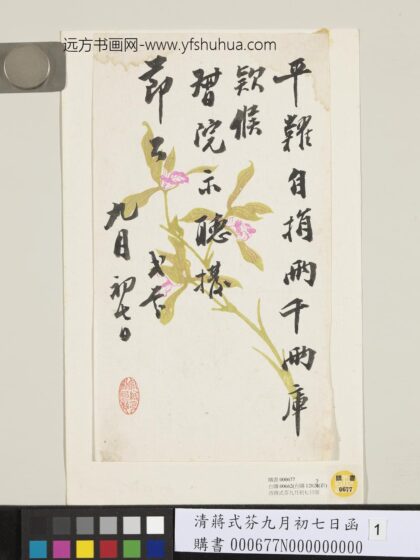 远方书画网-www.yfshuhua.com
平糶自捐兩千兩庫
欵候
督院示聽撥
節公
弍芬
九月初七日
購書 000677
清蔣式芬九月初七日函
購書
0677
清蔣式芬九月初七日函
購書 000677N000000000
1